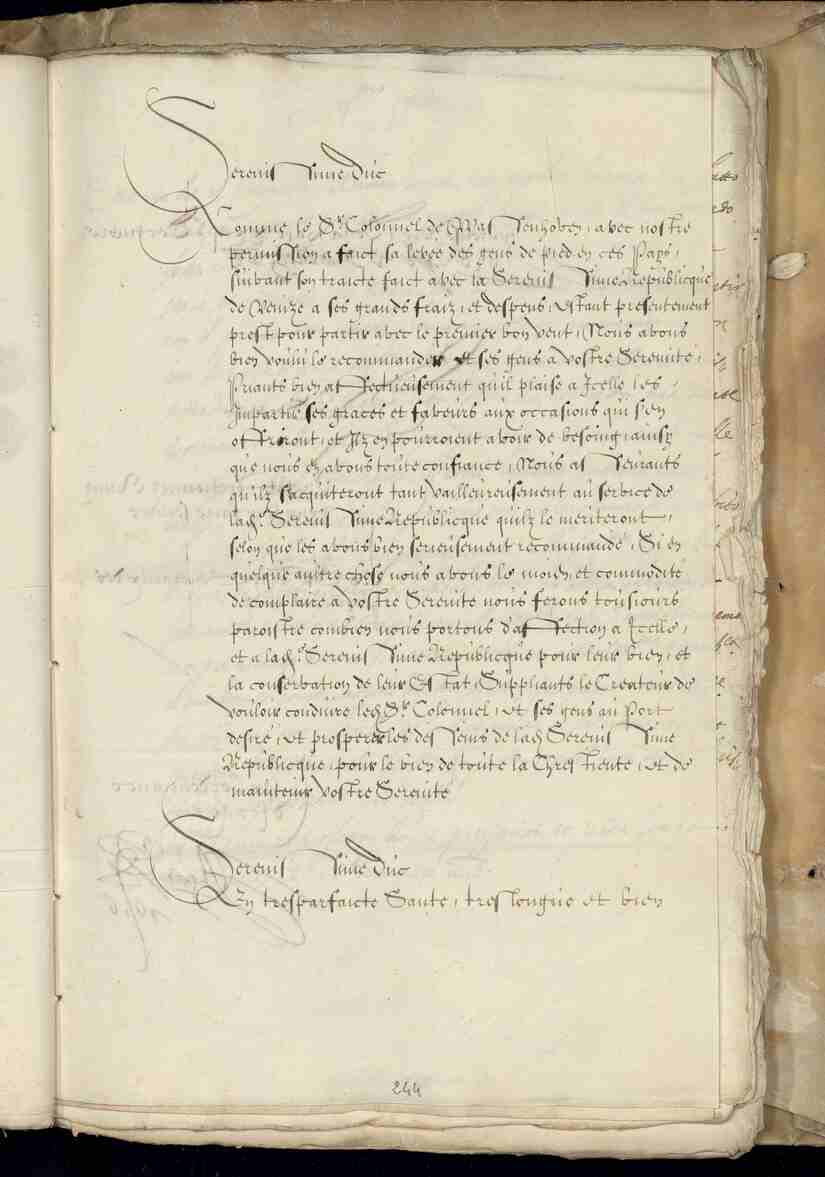 Serenissime Duc
Comme le Sr. Colonnel de Wassenhoven, avec nostre
permission a faict sa levée des gens de pied en ces Pays,
suivant son traicté faict avec la Serenissime Republicque
de Venize a ses grands fraiz, et despens, Estant presentement
prest pour partir avec le premier bon vent, Nous avons
bien voulu le recommander et ses gens a vostre Serenité,
Priants bien affectueusement qu'il plaise a Icelle les
Impartir ses graces et faveurs aux occasions qui s'en
offriront, et Ilz en pourroient avoir de besoing, ainsy
que nous en avons toute confiance, Nous asseurants
qu'ilz s'acquiteront tant vailleureusement au service de
lade. Serenissime Republicque quilz le meriteront,
selon que les avons bien serieusement recommandé, Si en
quelque autre chose nous avons le moien, et commodité
de complaire a vostre Serenité nous ferons tousiours
paroistre combien nous portons d'affection a Icelle,
et a lade. Serenissime Republicque pour leur bien, et
la conservation de leur Estat, Suppliants le Createur de
vouloir conduire led. Sr. Colonnel, et ses gens au Port
desiré, et prosperer les desseins de lad. Serenissime
Republicque, pour le bien de toute la Chrestienté, et de
maintenir vostre Serenité
Serenissime Duc
En tresparfaicte Santé, treslongue et bien
244